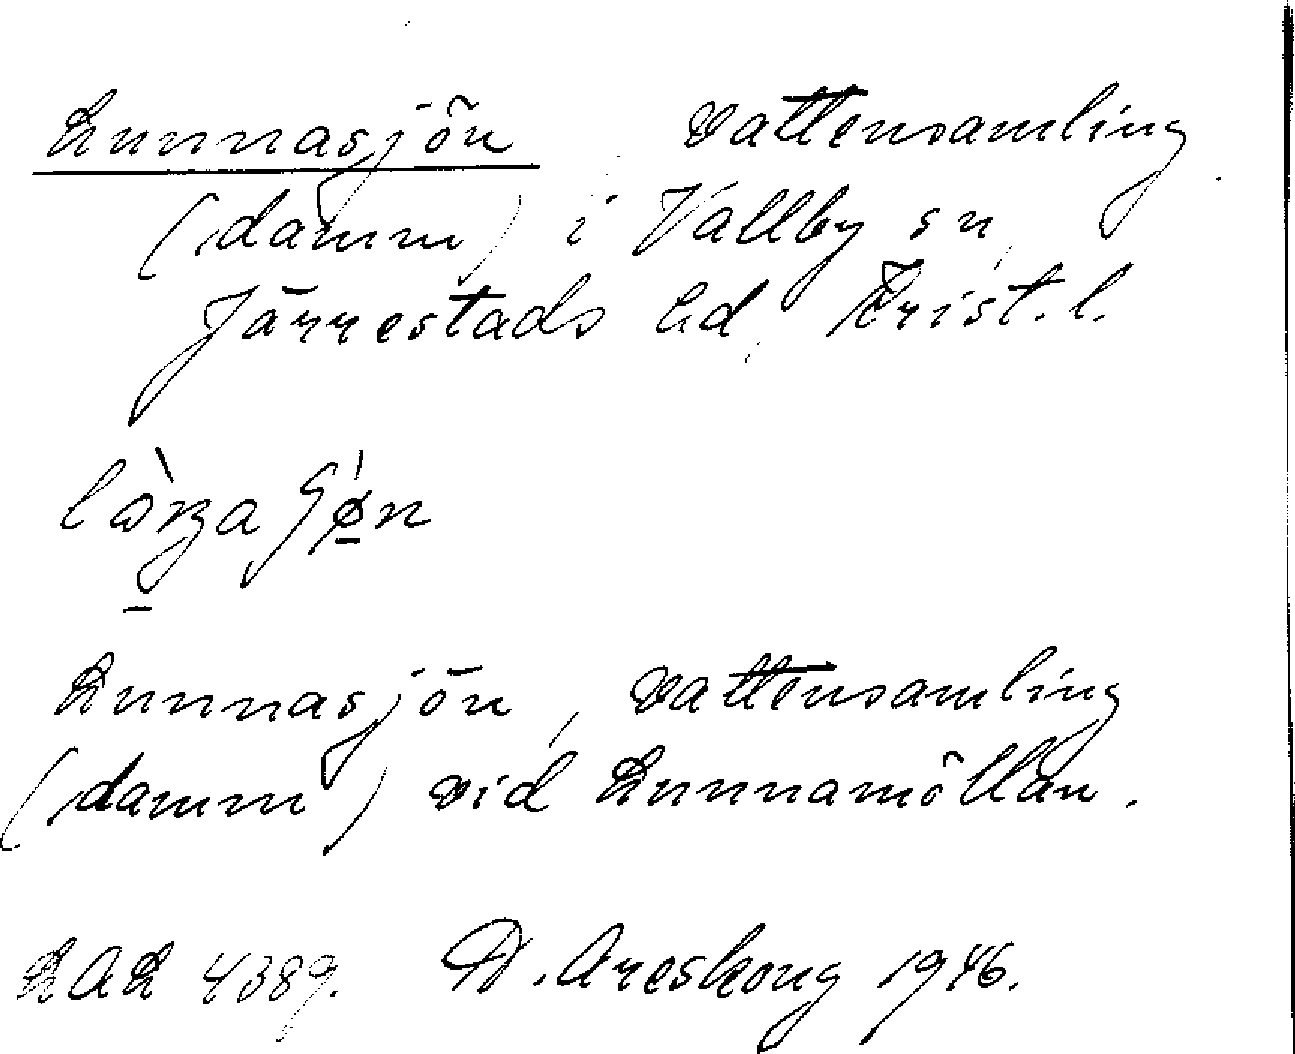 Lunnasjön vattensamling
(damm) i Vallby sn,
Järrestads hd, Krist. l.
Lunnasjön, vattensamling
(damm) vid Lunnamöllan.
LAL 4389. D. Areskoug 1946.